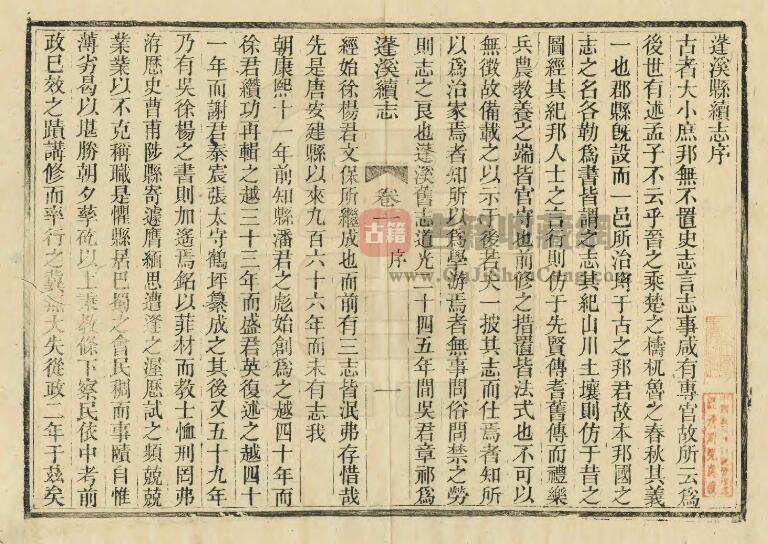 蓬溪縣續志序
古者大小庶邦無不置史志言志事咸有專官故所云爲
後世有述孟子不云乎晉之乘楚之檮杌魯之春秋其義
一也郡縣旣設而一邑所治埒于古之邦君故本邦國之
志之名各勒爲書皆謂之志其紀山川土壤則仿于昔之
圖經其紀邦人士之言行則仿于先賢傳耆舊傳而禮樂
兵農教養之端皆官守也前修之措置皆法式也不可以
無徵故備載之以示于後者夫一披其志而仕焉者知所
以爲治家焉者知所以爲學游焉者無事問俗問禁之勞
則志之良也蓬溪舊志道光二十四五年間吳君章祁爲
蓬溪續志 卷一 序 一
經始徐楊君文保所繼成也而前有三志皆泯弗存惜哉
先是唐安建縣以來九百六十六年而未有志我
朝康熙十一年前知縣潘君之彪始創爲之越四十年而
徐君纘功再輯之越三十三年而盛君英復述之越四十
一年而謝君泰宸張太守鶴坪纂成之其後又五十九年
乃有吳徐楊之書則加遙焉銘以菲材而教士恤刑罔弗
洊歷史曹甫陟縣寄遽膺緬思遭逢之渥歷試之頻兢兢
業業以不克稱職是懼縣居巴蜀之會民稠而事賾自惟
薄劣曷以堪勝朝夕孳矻以上秉教條下察民依中考前
政已效之蹟講修而率行之冀無大失從政二年于茲矣
古籍收藏網
www.GuJiShouCang.com